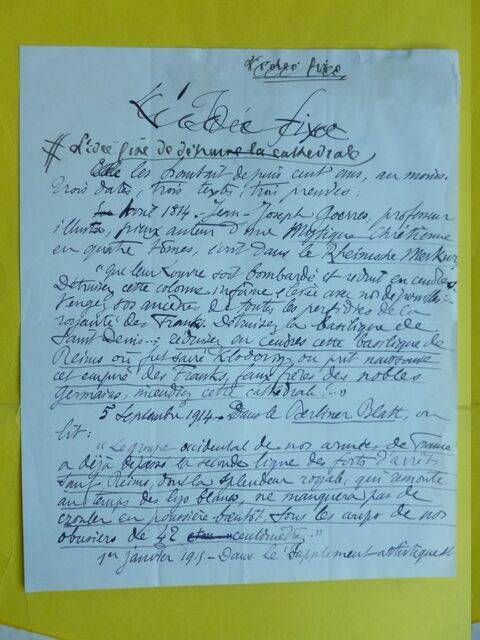 L'idée fixe
L'Idée fixe
# L'idée fixe de détruire la cathédrale
Elle les hantait depuis cent ans, au moins.
Trois dates, trois textes, trois preuves :
Avril 1814 - Jean-Joseph Goerres, professeur
illustre, pieux auteur d'une Mystique Chrétienne
en quatre tomes, écrit dans le Rheinische Merkur
"que leur Louvre soit bombardé et réduit en cendres
Détruisez cette colonne infâme élevée avec nos dépouilles
Vengez vos ancêtres de toutes les perfidies de la
royauté des Franks. Détruisez la basilique de
Saint Denis..; réduisez en cendres cette basilique de
Reims où fut sacré Klodovig, où prit naissance
cet empire des Franks, faux frères des nobles
germains, incendiez cette cathédrale !.."
5 Septembre 1914 - Dans le Berliner Blatt, on
lit :
"Le groupe occidental de nos armées de France
a déjà dépassé la seconde ligne des forts d'arrêt
sauf Reims, dont la splendeur royale, qui remonte
au temps des lys blancs, ne manquera pas de
crouler en poussière bientôt, sous les coups de nos
obusiers de 42"
1er janvier 1915 - Dans le Supplément artistique